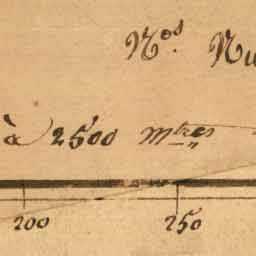 Nos
à 2500 mtres
200 250